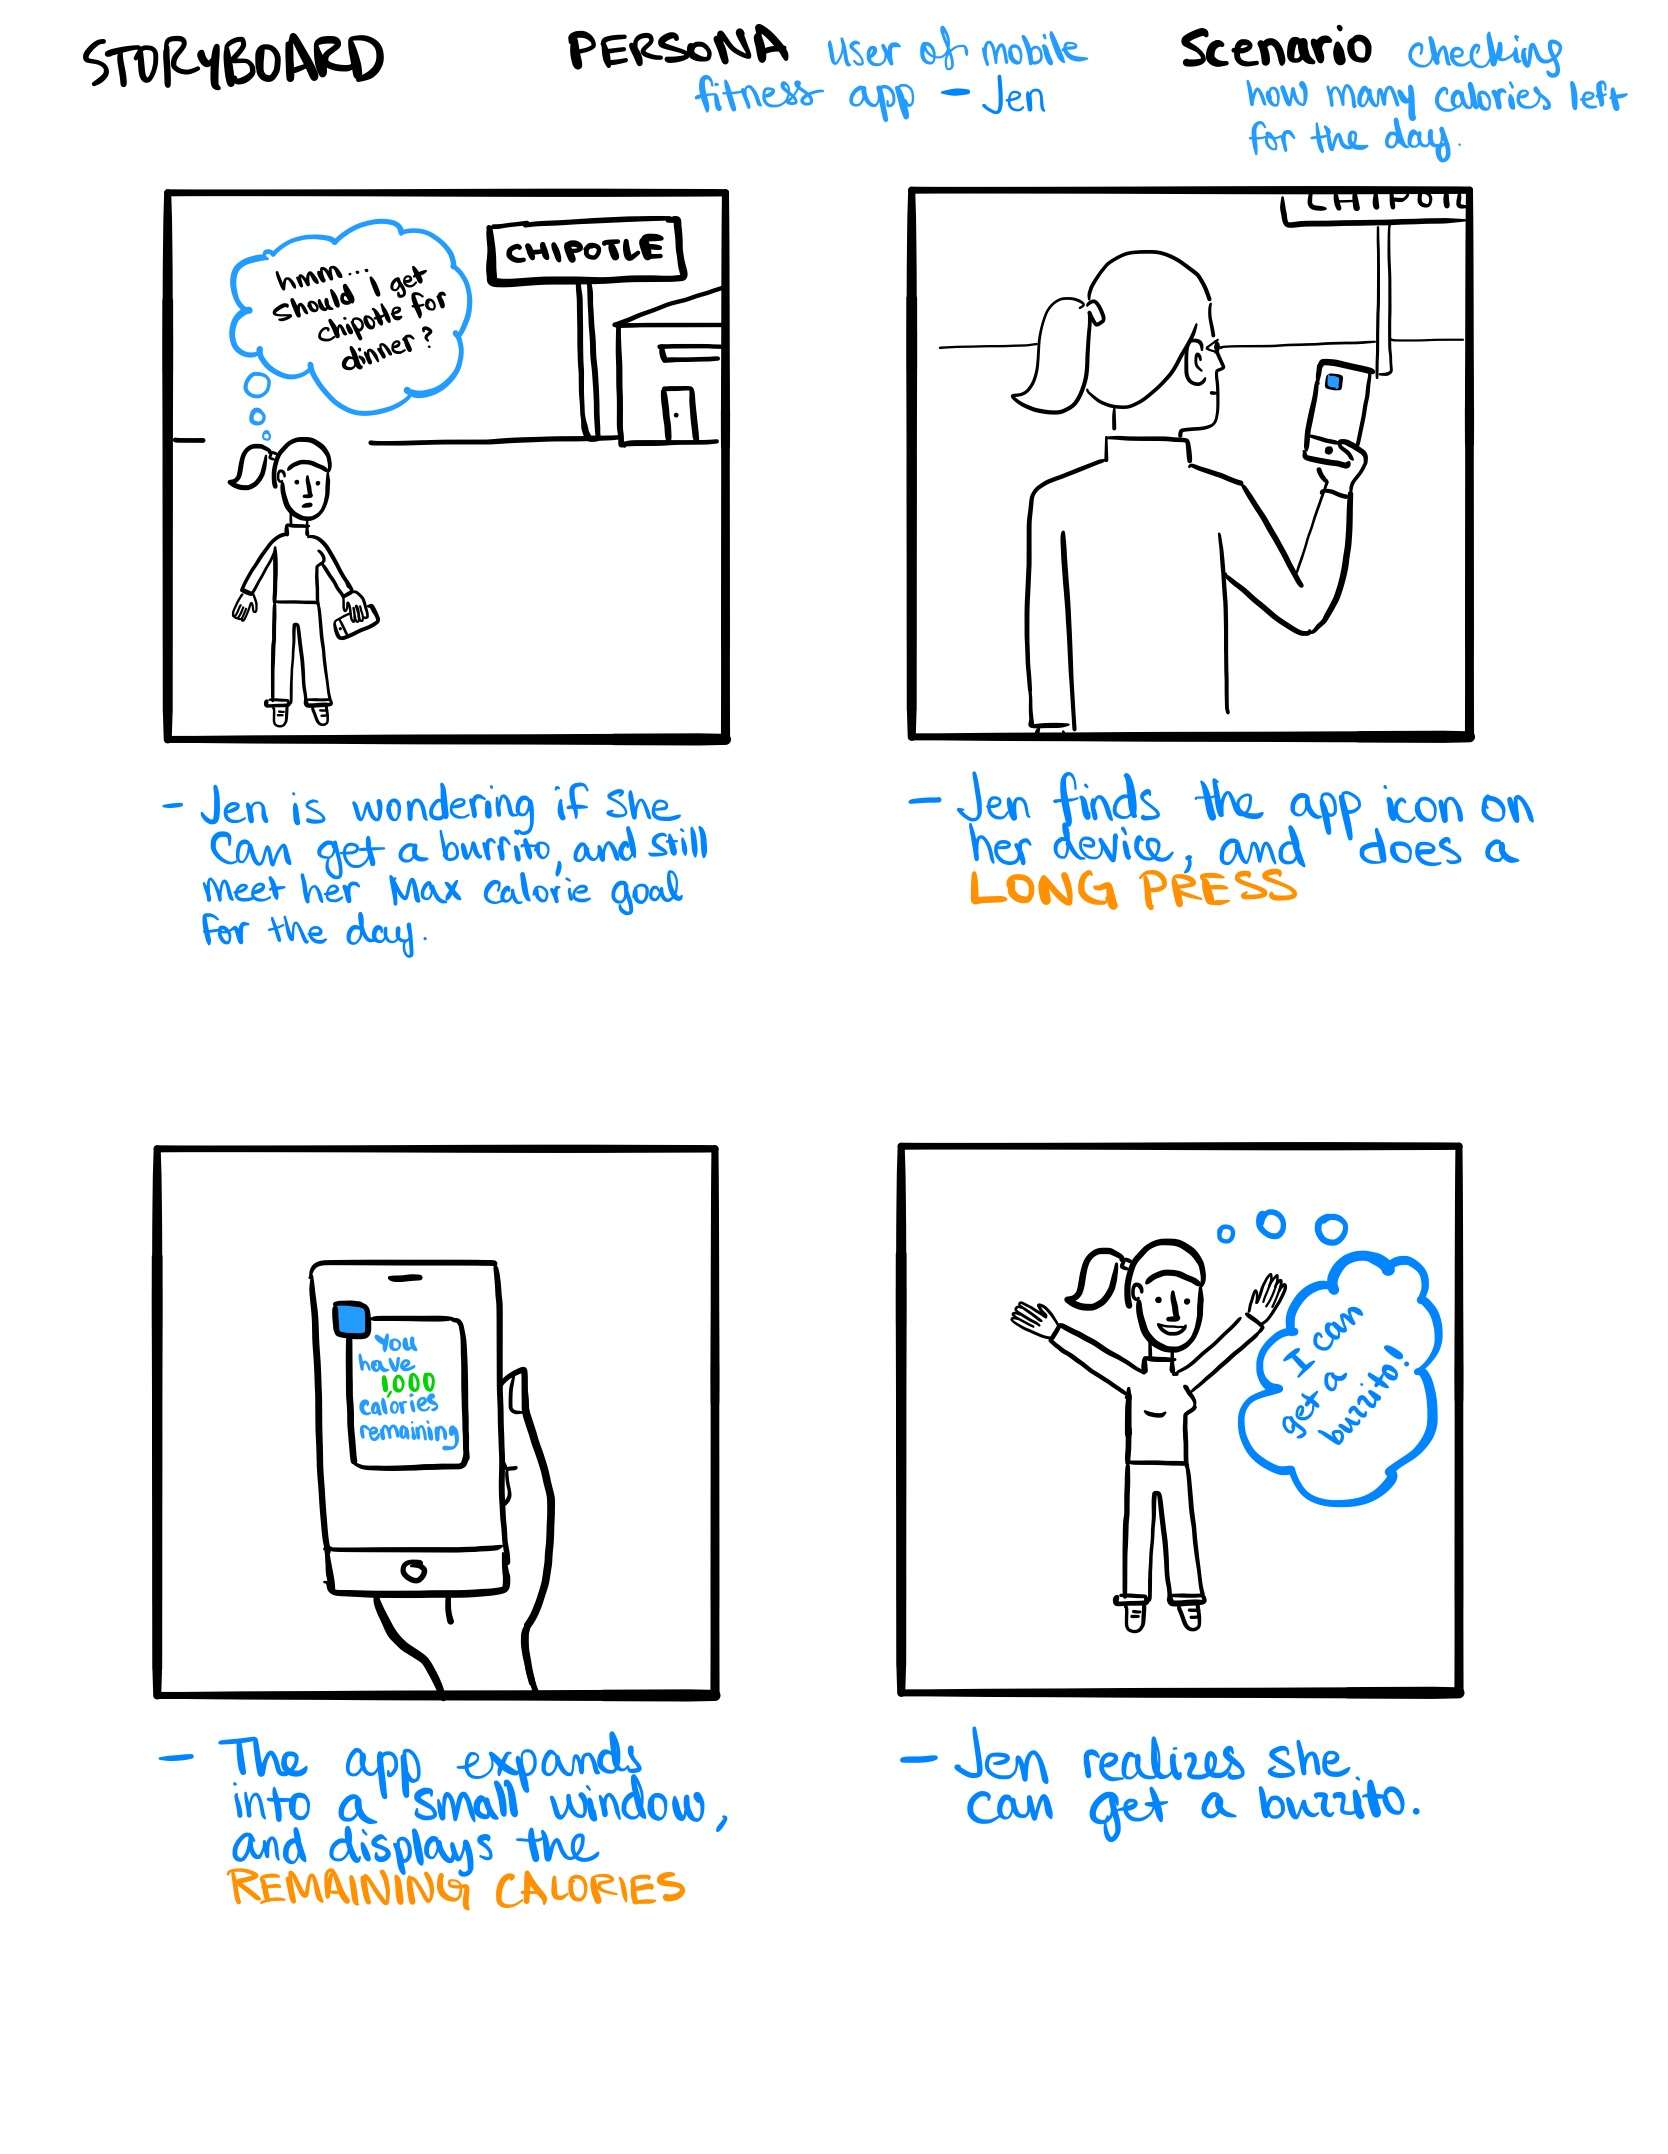 STORYBOARD
PERSONA user of mobile
fitness app - Jen
Scenario checking
how many calories left
for the day.
hmm...
should I get
chipotle for
dinner?
CHIPOTLE
CHIPOTL
- Jen is wondering if she
can get a burrito, and still
meet her Max calorie goal
for the day.
- Jen finds the app icon on
her device, and does a
LONG PRESS
You
have
1,000
calories
remaining
I can
get a
burrito!
- The app expands
into a small window,
and displays the
REMAINING CALORIES
- Jen realizes she
can get a burrito.